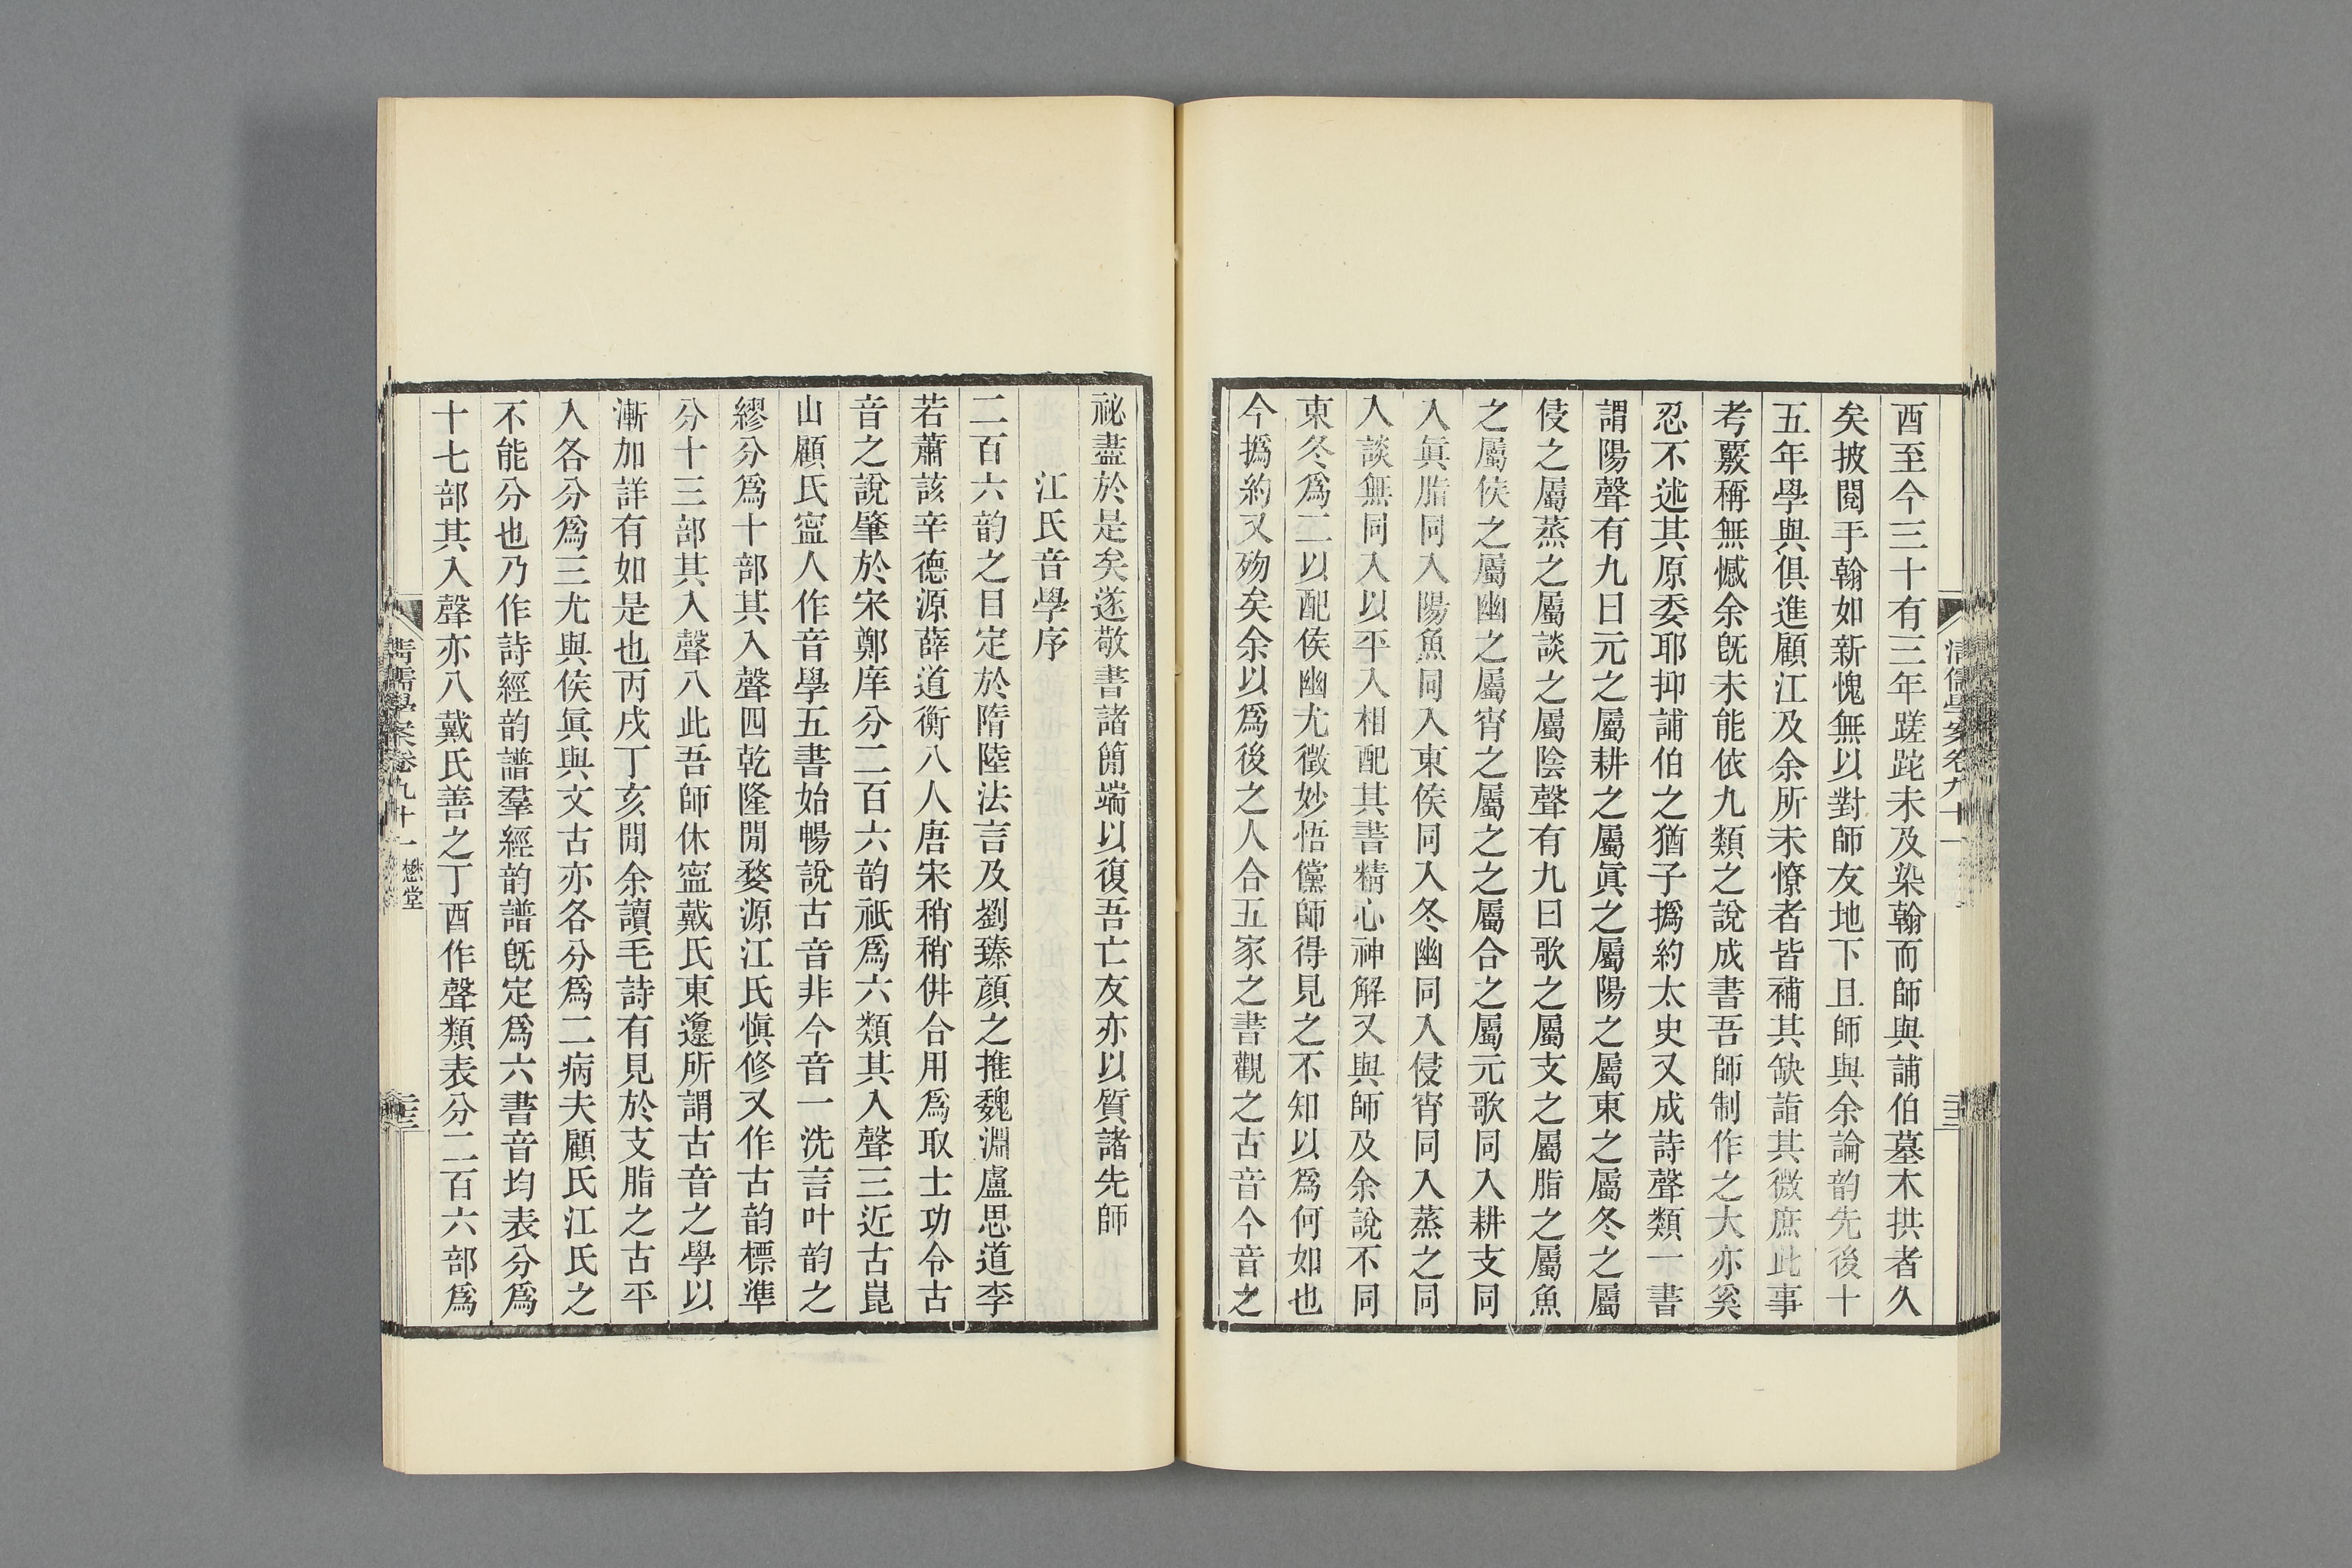 酉至今三十有三年蹉跎未及染翰而師與誧伯墓木拱者久
矣披閱手翰如新愧無以對師友地下且師與余論韵先後十
五年學與俱進顧江及余所未憭者皆補其缺詣其微庶此事
考覈稱無憾余旣未能依九類之說成書吾師制作之大亦奚
忍不述其原委耶抑誧伯之猶子撝約太史又成詩聲類一書
謂陽聲有九曰元之屬耕之屬眞之屬陽之屬東之屬冬之屬
侵之屬蒸之屬談之屬陰聲有九曰歌之屬支之屬脂之屬魚
之屬侯之屬幽之屬宵之屬之之屬合之屬元歌同入耕支同
入眞脂同入陽魚同入東侯同入冬幽同入侵宵同入蒸之同
入談無同入以平入相配其書精心神解又與師及余說不同
東冬爲二以配侯幽尤徵妙悟儻師得見之不知以爲何如也
今撝約又歾矣余以爲後之人合五家之書觀之古音今音之
清儒學案卷九十一
祕盡於是矣遂敬書諸簡端以復吾亡友亦以質諸先師
江氏音學序
二百六韵之目定於隋陸法言及劉臻顏之推魏淵盧思道李
若蕭該辛德源薛道衡八人唐宋稍稍倂合用爲取士功令古
音之說肇於宋鄭庠分二百六韵祇爲六類其入聲三近古崑
山顧氏寍人作音學五書始暢說古音非今音一洗言叶韵之
繆分爲十部其入聲四乾隆閒婺源江氏愼修又作古韵標準
分十三部其入聲八此吾師休寍戴氏東邍所謂古音之學以
漸加詳有如是也丙戌丁亥閒余讀毛詩有見於支脂之古平
入各分爲三尤與侯眞與文古亦各分爲二病夫顧氏江氏之
不能分也乃作詩經韵譜羣經韵譜旣定爲六書音均表分爲
十七部其入聲亦八戴氏善之丁酉作聲類表分二百六部爲
清儒學案卷九十一 懋堂